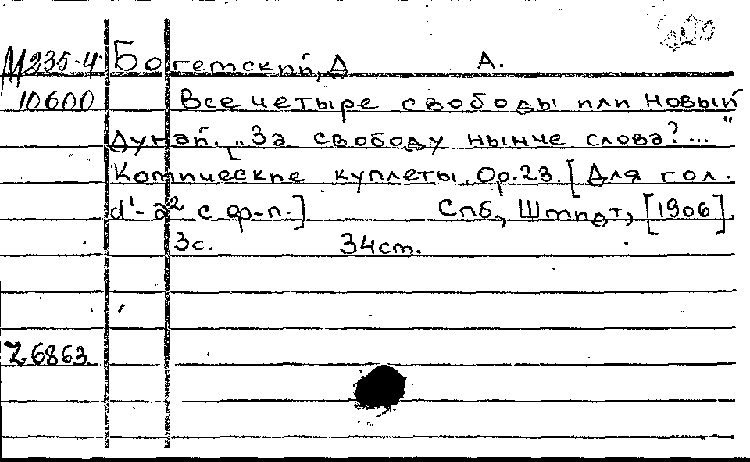 М235-4 Богетский, Д А.
10600 Все четыре свободы или новый
Дунай. [„За свободу нынче слова?..."
Комические куплеты. Ор. 23. [Для гол.
d¹-a² с ф-п.] Спб, Штидт, [1906].
3с. 34ст.
Z6863